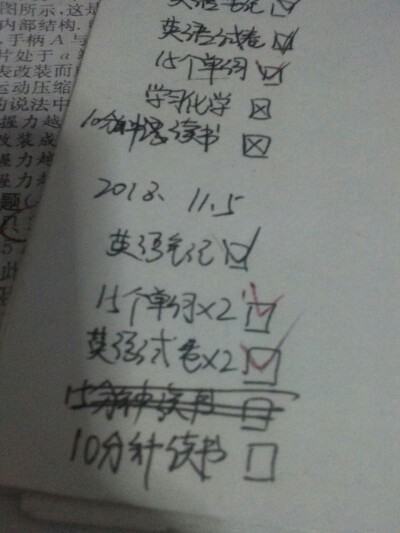 图所示,这是
内部结构.
,手柄 A 与
片处于 a
表改装而
运动压缩
的说法中
握力越
改装成
握力越
握力
题(
英语笔记
英语试卷
15个单词
学习化学
10分钟读书
2018. 11.5
英语笔记
15个单词×2
英语试卷×2
15分钟读书
10分钟读书